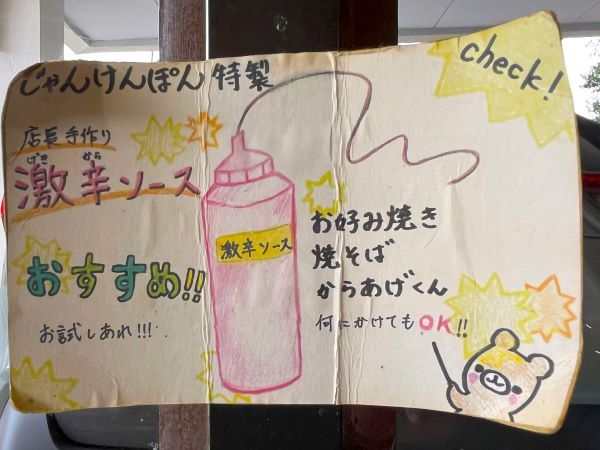 じゃんけんぽん特製
check!
店長手作り
げき から
激辛ソース
おすすめ!!
お試しあれ!!!
激辛ソース
お好み焼き
焼そば
からあげくん
何にかけてもOK!!